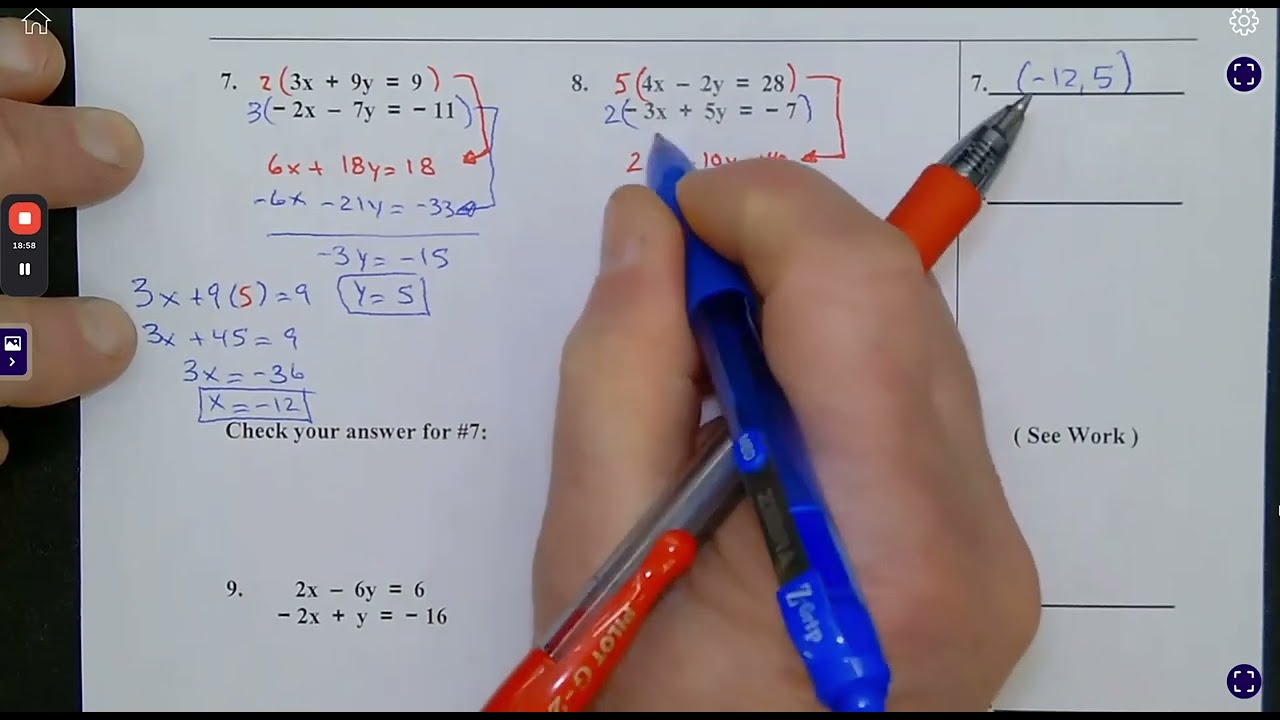 7. 2(3x + 9y = 9)
3(- 2x - 7y = - 11)
6x + 18y = 18
-6x - 21y = -33
-3y = -15
3x + 9(5) = 9
y = 5
3x + 45 = 9
3x = -36
x = -12
Check your answer for #7:
8. 5(4x - 2y = 28)
2(- 3x + 5y = - 7)
2
7. (-12, 5)
( See Work )
9. 2x - 6y = 6
- 2x + y = - 16
18:58
PILOT G-2
Z-Grip